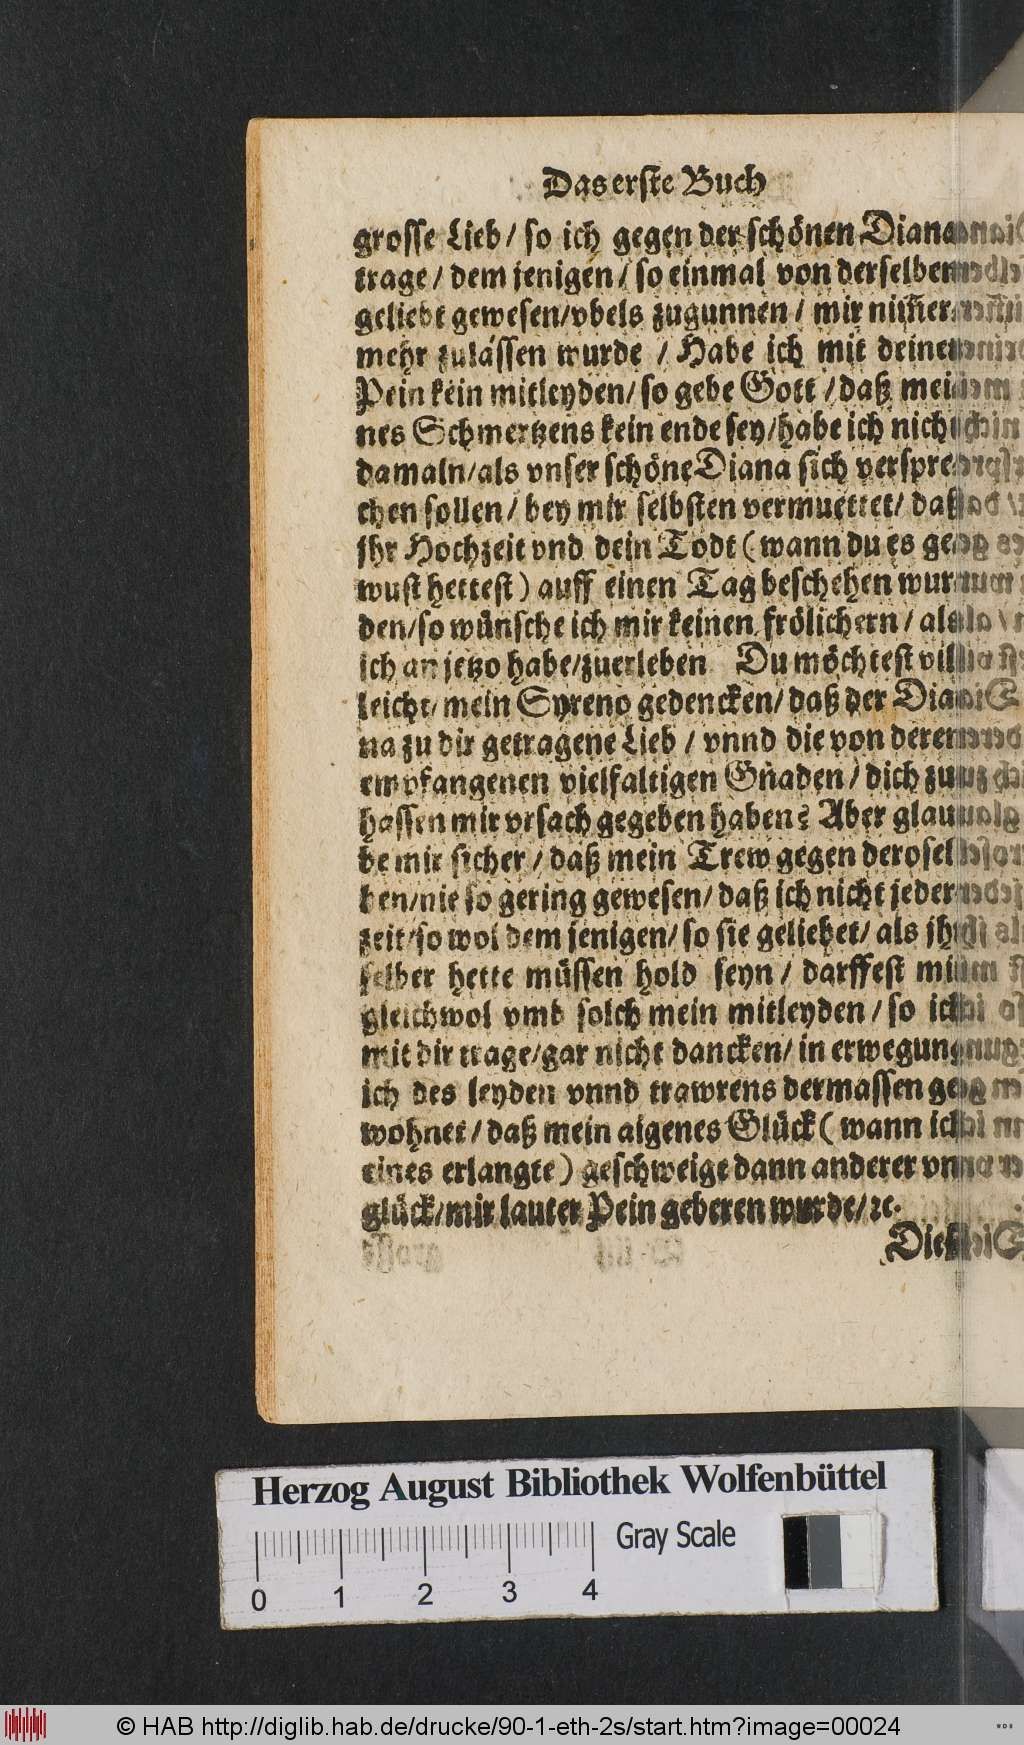 Das erste Buch
grosse Lieb / so ich gegen der schönen Diana
trage / dem jenigen / so einmal von derselben
geliebt gewesen / vbels zugunnen / mir nim̃er
mehr zulassen wurde / Habe ich mit deiner
Pein kein mitleyden / so gebe Gott / daß mei
nes Schmertzens kein ende sey / habe ich nicht
damaln / als vnser schöne Diana sich verspre
chen sollen / bey mir selbsten vermuettet / daß
jhr Hochzeit vnd dein Todt ( wann du es ge
wust hettest ) auff einen Tag beschehen wur
den / so wünsche ich mir keinen frölichern / als
ich an jetzo habe / zuerleben. Du möchtest vil
leicht / mein Syreno gedencken / daß der Dia
na zu dir getragene Lieb / vnnd die von deren
empfangenen vielfaltigen Gnaden / dich zu
hassen mir vrsach gegeben haben? Aber glau
be mir sicher / daß mein Trew gegen derosel
ben / nie so gering gewesen / daß ich nicht jeder
zeit / so wol dem jenigen / so sie geliebet / als jhr
selber hette müssen hold seyn / darffest mir
gleichwol vmb solch mein mitleyden / so ich
mit dir trage / gar nicht dancken / in erwegung
ich des leyden vnnd trawrens dermassen ge
wohnet / daß mein aigenes Glück ( wann ich
eines erlangte ) geschweige dann anderer vn
glück / mir lauter Pein geberen wurde / ꝛc.
Dieß
Herzog August Bibliothek Wolfenbüttel
Gray Scale
0 1 2 3 4
© HAB http://diglib.hab.de/drucke/90-1-eth-2s/start.htm?image=00024